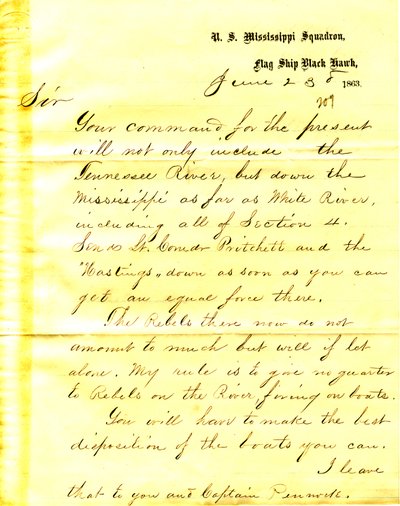 U. S. Mississippi Squadron,
Flag Ship Black Hawk,
June 23d 1863.
Sir
Your command for the present
will not only include the
Tennessee River, but down the
Mississippi as far as White River,
including all of Section 4.
Send Lt. Comdr Pritchett and the
"Hastings" down as soon as you can
get an equal force there.
The Rebels there now do not
amount to much but will if let
alone. My rule is to give no quarter
to Rebels on the River, firing on boats.
You will have to make the best
disposition of the boats you can.
I leave
that to you and Captain Pennock.